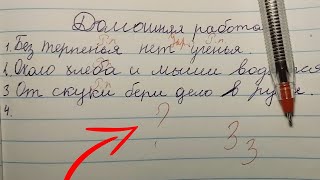 Домашняя работа
1. Без терпенья нет ученья.
2. Около хлеба и мыши водятся
3 От скуки бери дело в руки.
4.
?
3
3